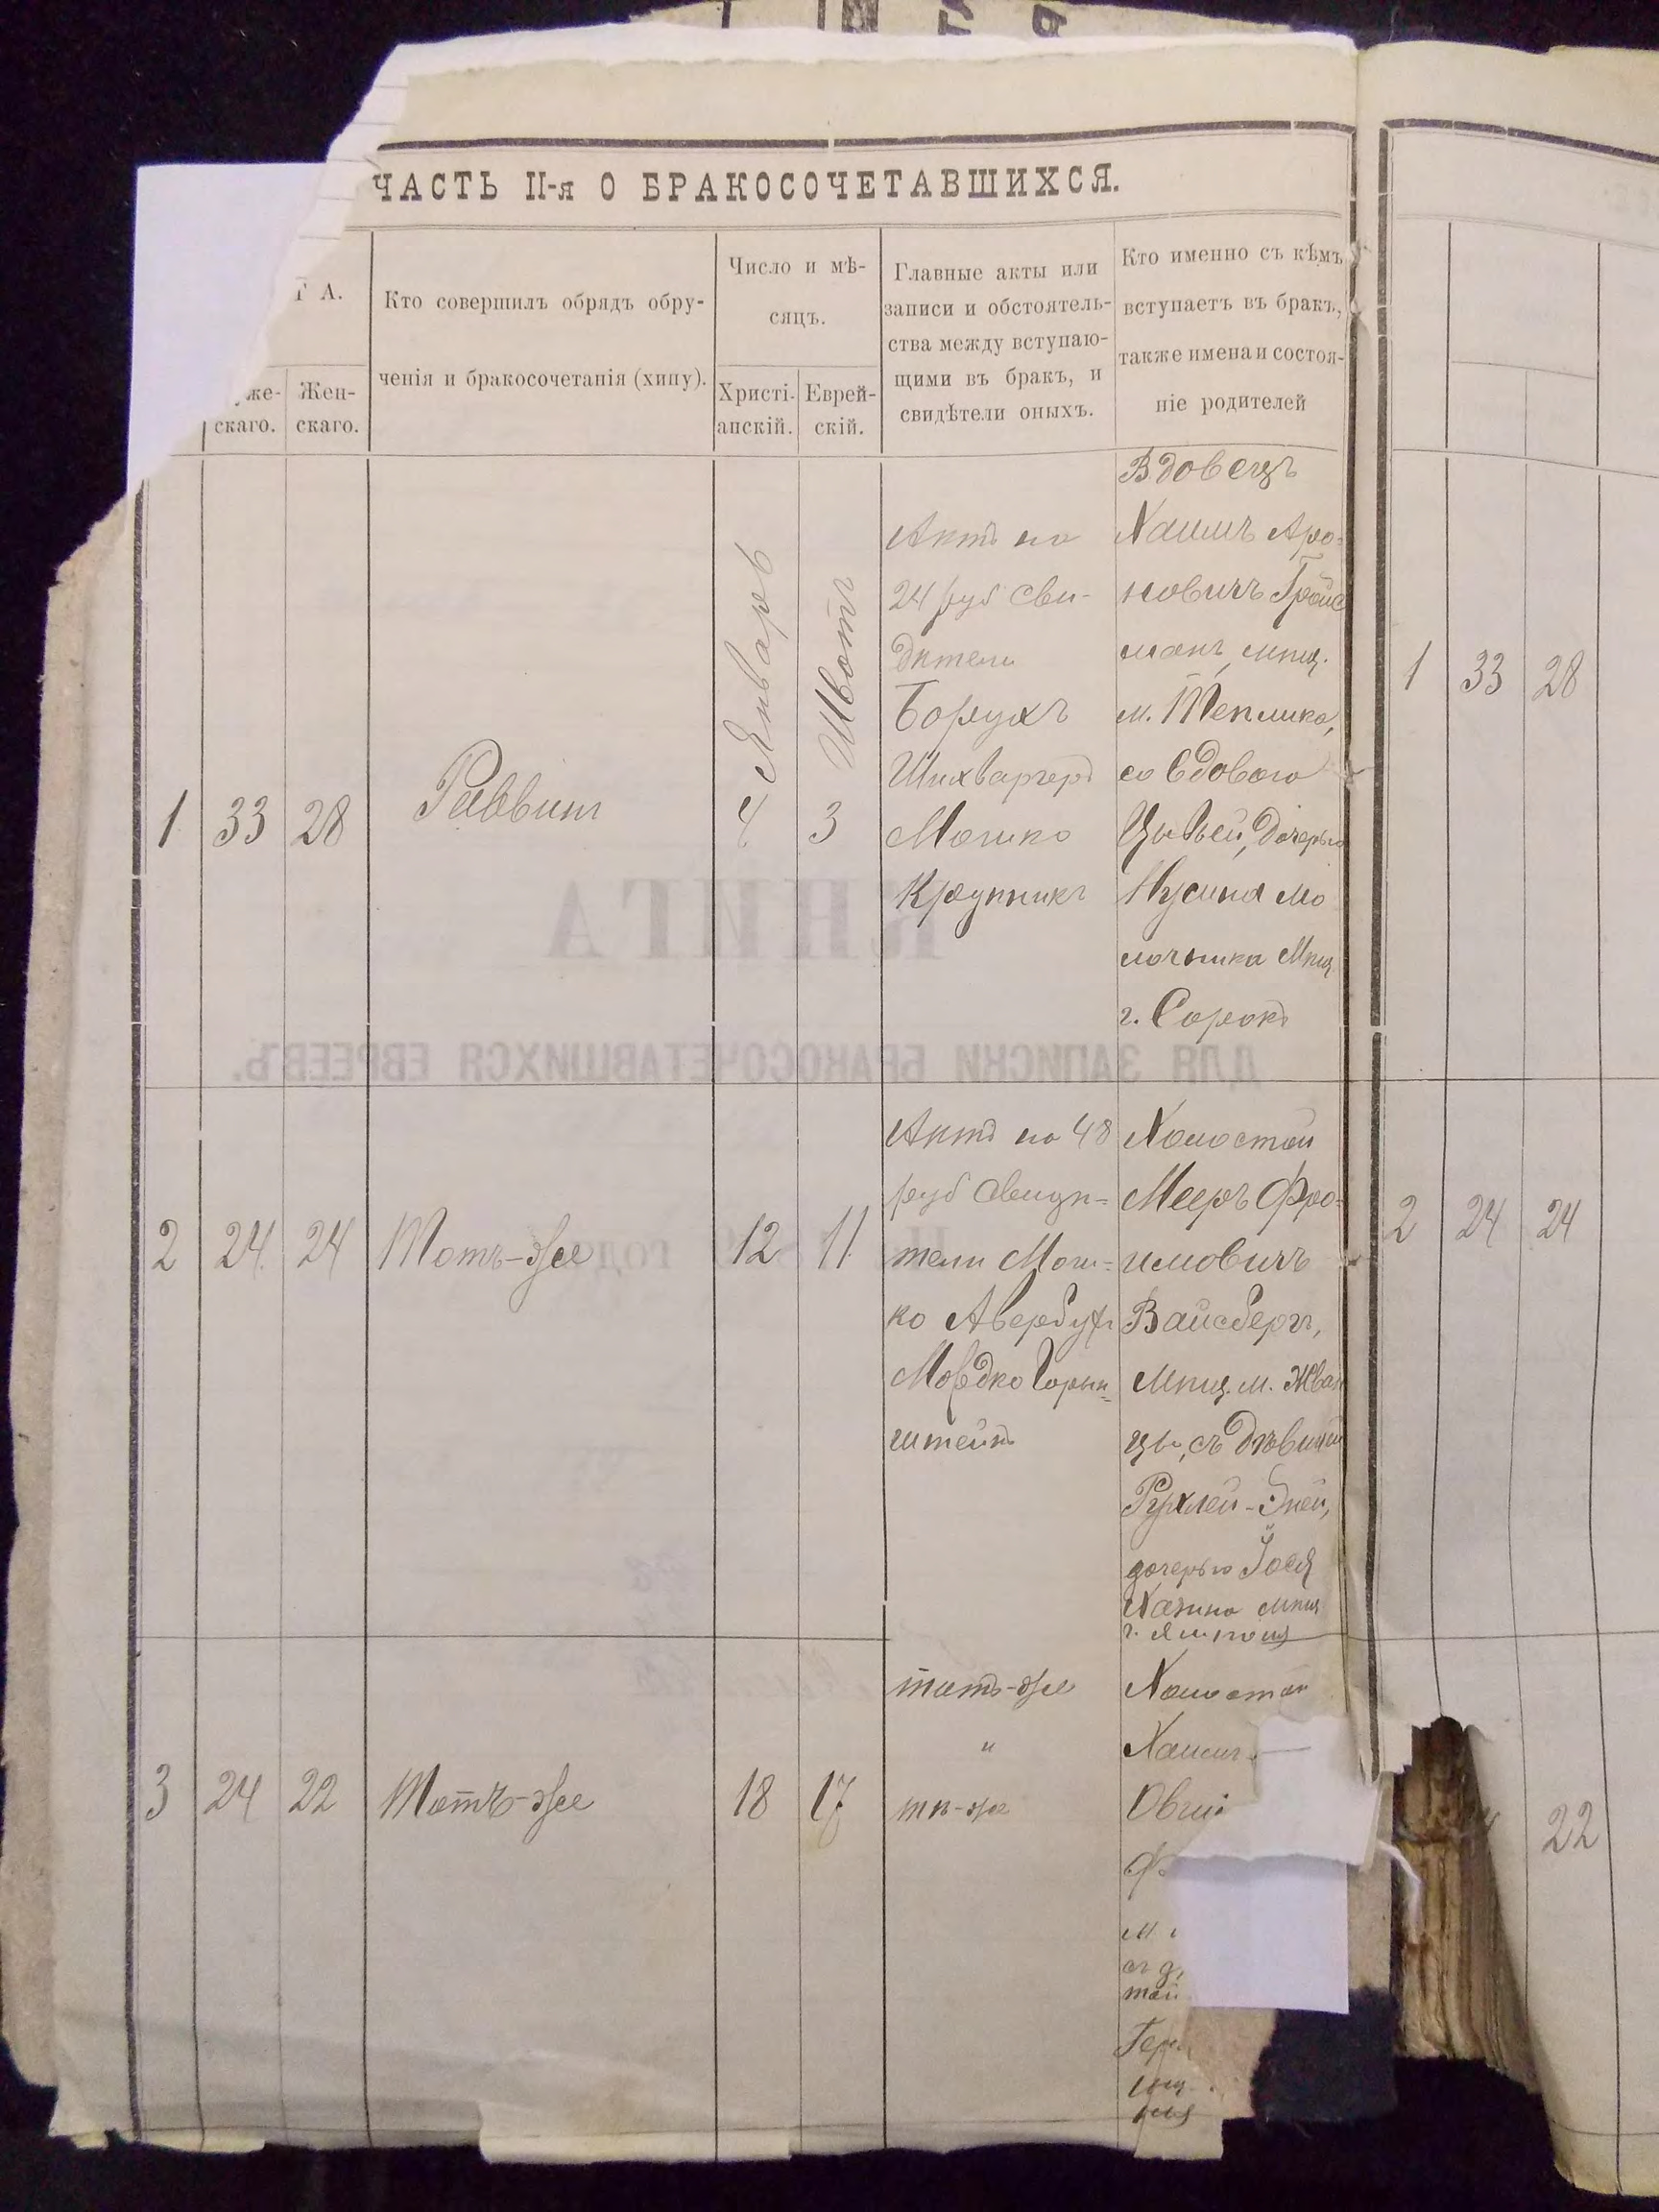 ЧАСТЬ II-я О БРАКОСОЧЕТАВШИХСЯ.
Т А.
уже-
скаго.
Жен-
скаго.
Кто совершилъ обрядъ обру-
ченія и бракосочетанія (хипу).
Число и мѣ-
сяцъ.
Христі-
анскій.
Еврей-
скій.
Главные акты или
записи и обстоятель-
ства между вступаю-
щими въ бракъ, и
свидѣтели оныхъ.
Кто именно съ кѣмъ
вступаетъ въ бракъ,
также имена и состоя-
ніе родителей
1
33
28
Раввинъ
4
Январь
3
Шватъ
Актъ на
24 руб Сви-
дѣтели
Борухъ
Шихваргеръ
Мошко
Крупникъ
Вдовецъ
Хаимъ Аро-
новичъ Гройс
манъ, мѣщ.
м. Теплика,
со вдовою
Цывьей, дочерью
Нусина Мо
лочника Мѣщ.
г. Сорокъ
1
33
28
2
24
24
Тотъ-же
12
11
Актъ на 48
руб Свидѣ-
тели Мош-
ко Авербухъ
Мордко Горен-
штейнъ
Холостой
Мееръ Фро-
имовичъ
Вайсбергъ,
Мѣщ. м. Жван
цы, съ дѣвицей
Рухлей-Эней,
дочерью Іося
Хазина мѣщ
г. Ямполя
2
24
24
3
24
22
Тотъ-же
18
17
тотъ-же
"
тѣ-же
Холостой
Хаимъ
Овші
Ф
м
съ д
той
Гер
22
КНИГА
ДЛЯ ЗАПИСКИ БРАКОСОЧЕТАВШИХСЯ ЕВРЕЕВЪ.
годъ